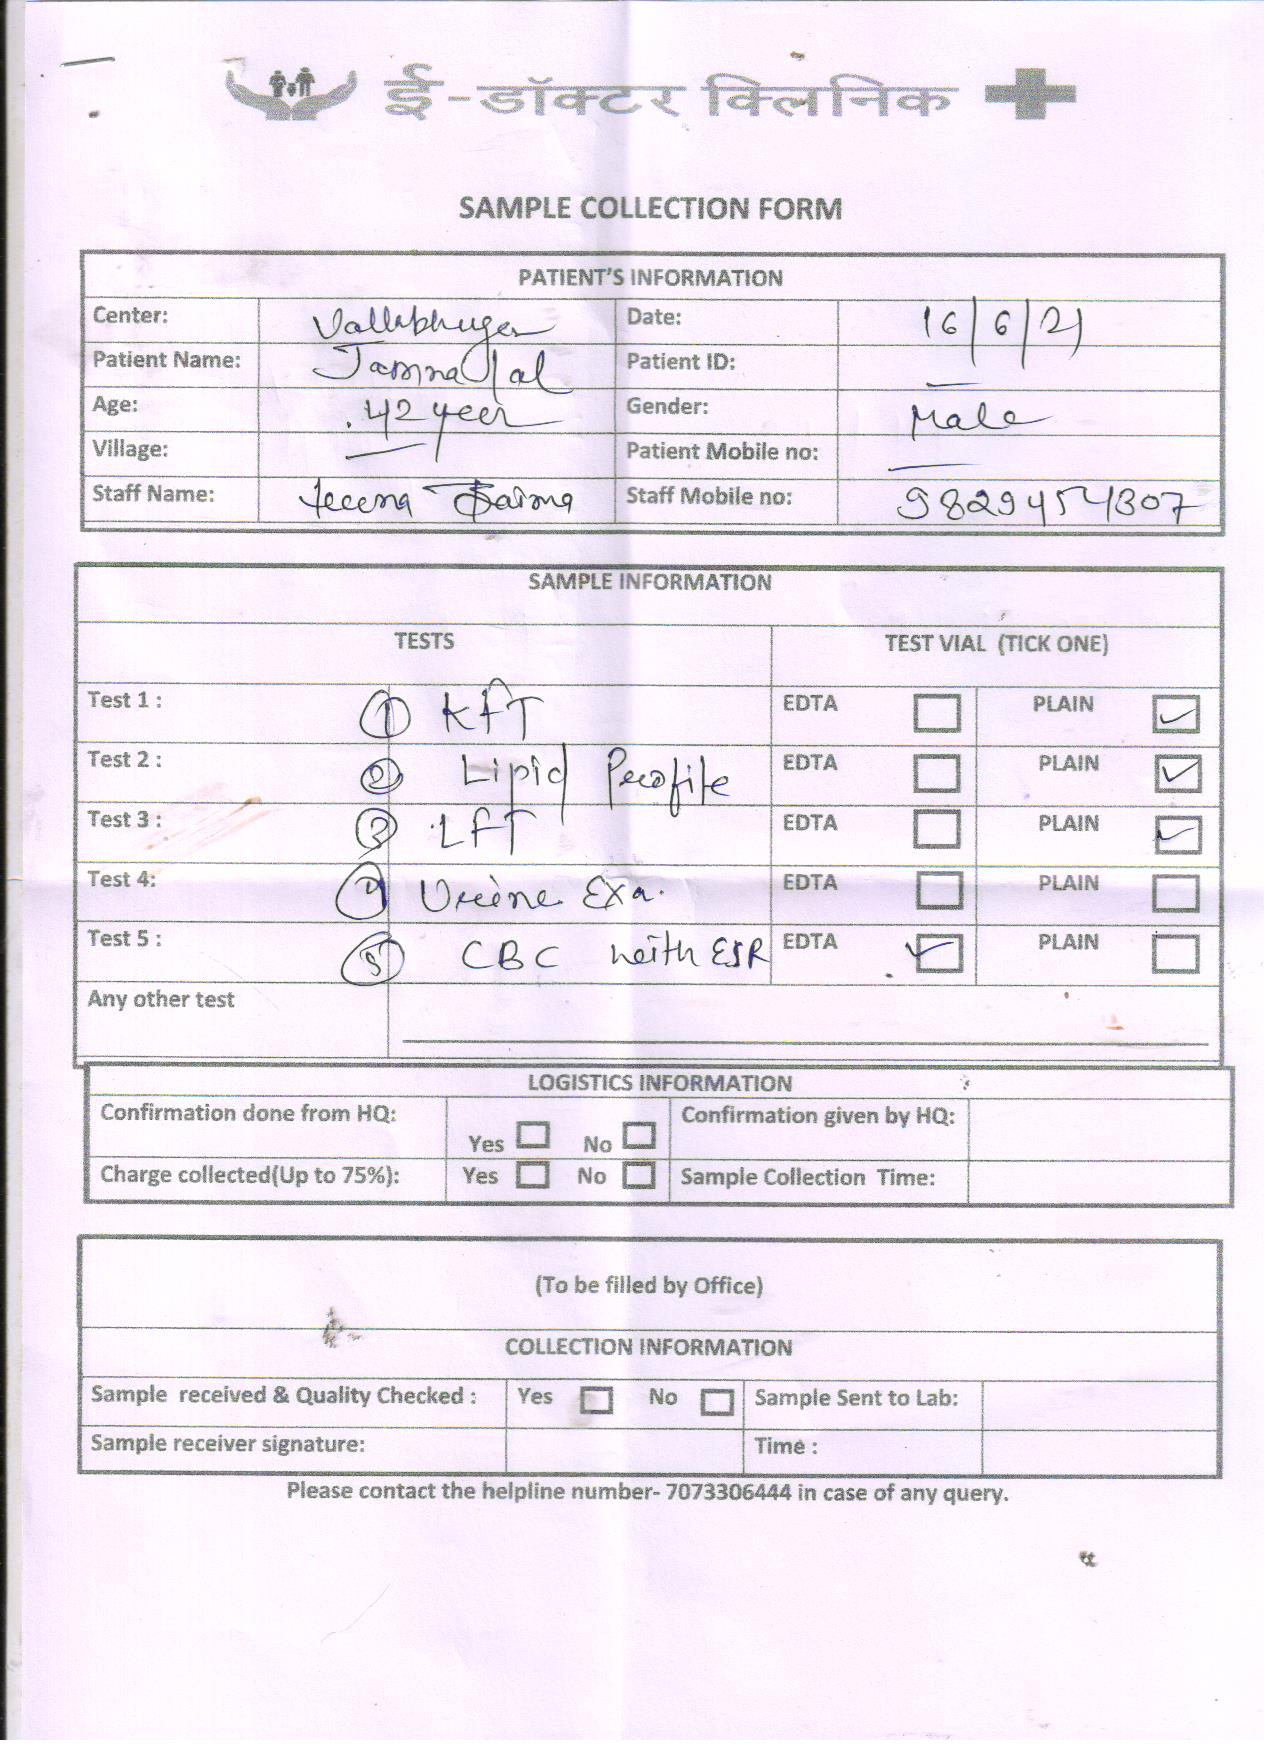 ई-डॉक्टर क्लिनिक
SAMPLE COLLECTION FORM
PATIENT'S INFORMATION
Center: Date: 16/6/21
Patient Name: Jamna lal Patient ID: —
Age: 42 year Gender: Male
Village: — Patient Mobile no: —
Staff Name: Staff Mobile no: 9829454307
SAMPLE INFORMATION
TESTS TEST VIAL (TICK ONE)
Test 1 : ① KFT EDTA PLAIN ✓
Test 2 : ② Lipid Profile EDTA PLAIN ✓
Test 3 : ③ LFT EDTA PLAIN ✓
Test 4: ④ Urine Exa. EDTA PLAIN
Test 5 : ⑤ CBC with ESR EDTA ✓ PLAIN
Any other test
LOGISTICS INFORMATION
Confirmation done from HQ: Yes No Confirmation given by HQ:
Charge collected(Up to 75%): Yes No Sample Collection Time:
(To be filled by Office)
COLLECTION INFORMATION
Sample received & Quality Checked : Yes No Sample Sent to Lab:
Sample receiver signature: Time :
Please contact the helpline number- 7073306444 in case of any query.